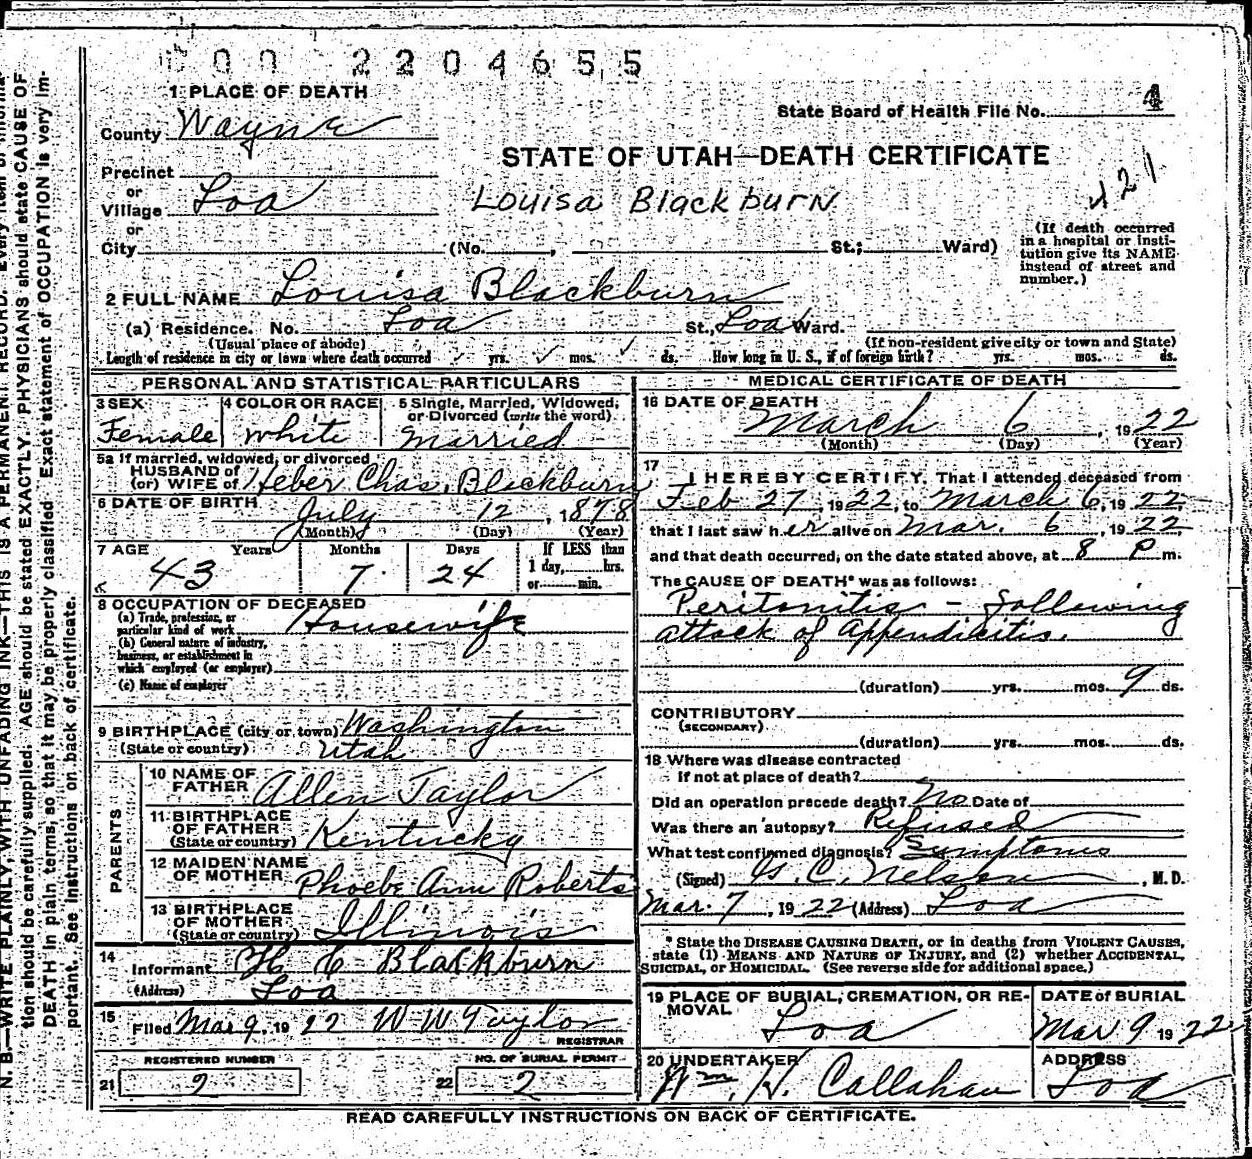 00 2204655
1 PLACE OF DEATH
County Wayne
State Board of Health File No. 4
STATE OF UTAH—DEATH CERTIFICATE
421
Precinct
or
Village Loa
Louisa Blackburn
or
City (No. , St.; Ward)
(If death occurred
in a hospital or insti-
tution give its NAME
instead of street and
number.)
2 FULL NAME Louisa Blackburn
(a) Residence. No. Loa St., Loa Ward.
(Usual place of abode)
(If non-resident give city or town and State)
Length of residence in city or town where death occurred yrs. mos. ds. How long in U. S., if of foreign birth? yrs. mos. ds.
PERSONAL AND STATISTICAL PARTICULARS
3 SEX
Female
4 COLOR OR RACE
White
5 Single, Married, Widowed,
or Divorced (write the word)
Married
5a If married, widowed, or divorced
HUSBAND of
(or) WIFE of Heber Chas. Blackburn
6 DATE OF BIRTH
July 12, 1878
(Month) (Day) (Year)
7 AGE Years Months Days
If LESS than
1 day, hrs.
or min.
43 7 24
8 OCCUPATION OF DECEASED
(a) Trade, profession, or
particular kind of work Housewife
(b) General nature of industry,
business, or establishment in
which employed (or employer)
(c) Name of employer
9 BIRTHPLACE (city or town) Washington
(State or country) Utah
PARENTS
10 NAME OF
FATHER Allen Taylor
11 BIRTHPLACE
OF FATHER
(State or country) Kentucky
12 MAIDEN NAME
OF MOTHER Phoebe Ann Roberts
13 BIRTHPLACE
OF MOTHER
(State or country) Illinois
14
Informant H C Blackburn
(Address) Loa
15
Filed Mar 9, 1922 W W Taylor
REGISTRAR
REGISTERED NUMBER
21 2
NO. OF BURIAL PERMIT
22 2
MEDICAL CERTIFICATE OF DEATH
16 DATE OF DEATH
March 6, 1922
(Month) (Day) (Year)
17
I HEREBY CERTIFY, That I attended deceased from
Feb 27, 1922, to March 6, 1922,
that I last saw her alive on Mar. 6, 1922,
and that death occurred, on the date stated above, at 8 P m.
The CAUSE OF DEATH* was as follows:
Peritonitis - following
attack of appendicitis.
(duration) yrs. mos. 9 ds.
CONTRIBUTORY
(SECONDARY)
(duration) yrs. mos. ds.
18 Where was disease contracted
if not at place of death?
Did an operation precede death? No Date of
Was there an autopsy? Refused
What test confirmed diagnosis? Symptoms
(Signed) G. C. Nelson, M. D.
Mar. 7, 1922 (Address) Loa
* State the DISEASE CAUSING DEATH, or in deaths from VIOLENT CAUSES,
state (1) MEANS AND NATURE OF INJURY, and (2) whether ACCIDENTAL,
SUICIDAL, or HOMICIDAL. (See reverse side for additional space.)
19 PLACE OF BURIAL, CREMATION, OR RE-
MOVAL Loa
DATE of BURIAL
Mar 9 1922
20 UNDERTAKER
Wm. H. Callahan
ADDRESS
Loa
READ CAREFULLY INSTRUCTIONS ON BACK OF CERTIFICATE.
N. B.—WRITE PLAINLY, WITH UNFADING INK—THIS IS A PERMANENT RECORD. Every item of informa-
tion should be carefully supplied. AGE should be stated EXACTLY. PHYSICIANS should state CAUSE OF
DEATH in plain terms, so that it may be properly classified. Exact statement of OCCUPATION is very im-
portant. See instructions on back of certificate.